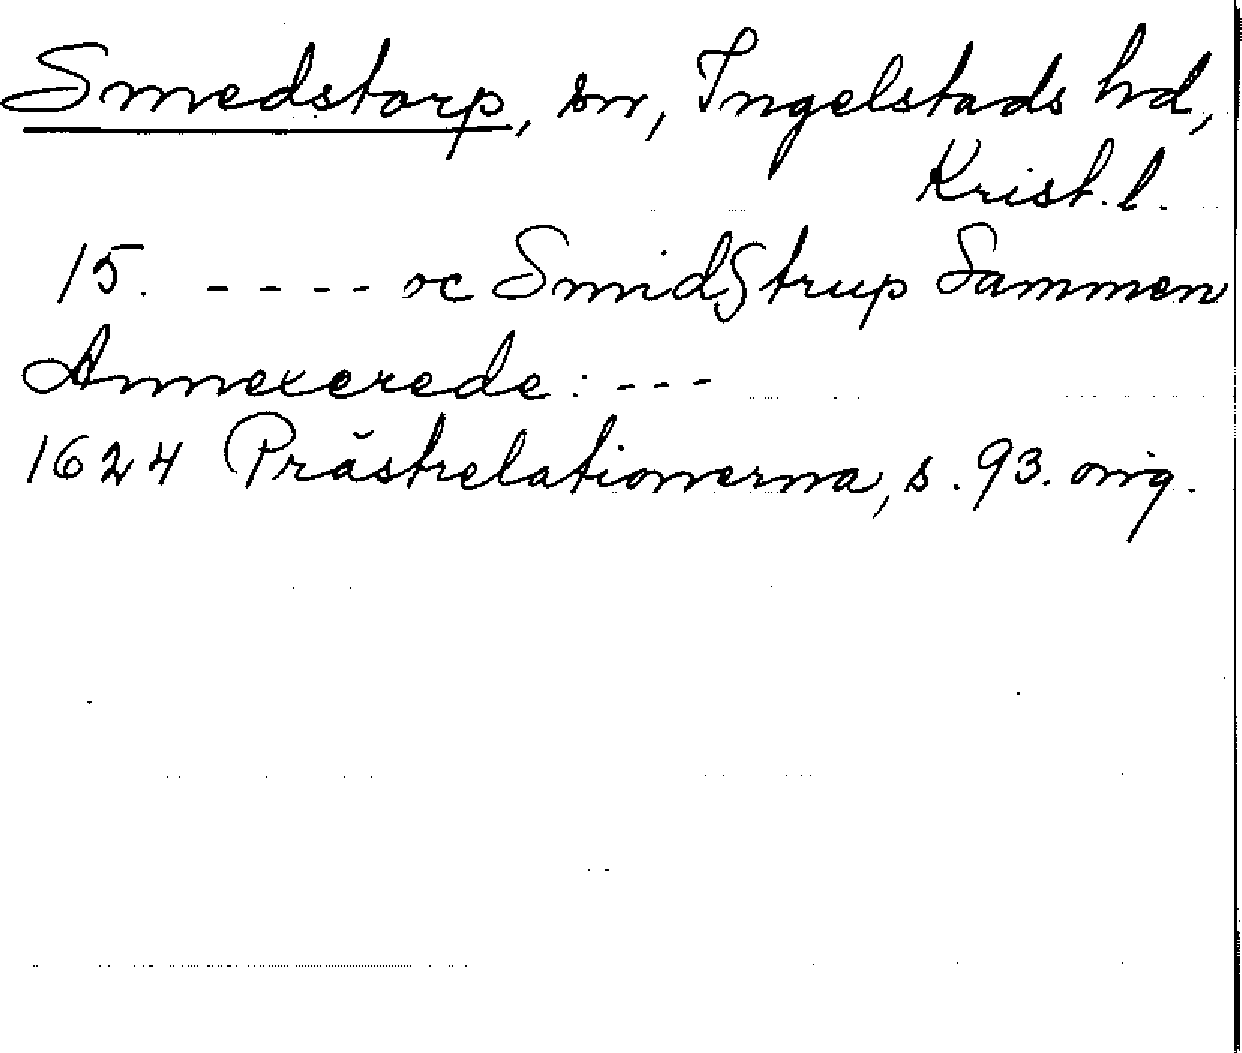 Smedstorp, sn, Ingelstads hd,
Krist. l.
15. - - - - oc Smidstrup Sammen
Annexerede: - - -
1624 Prästrelationerna, s. 93. orig.